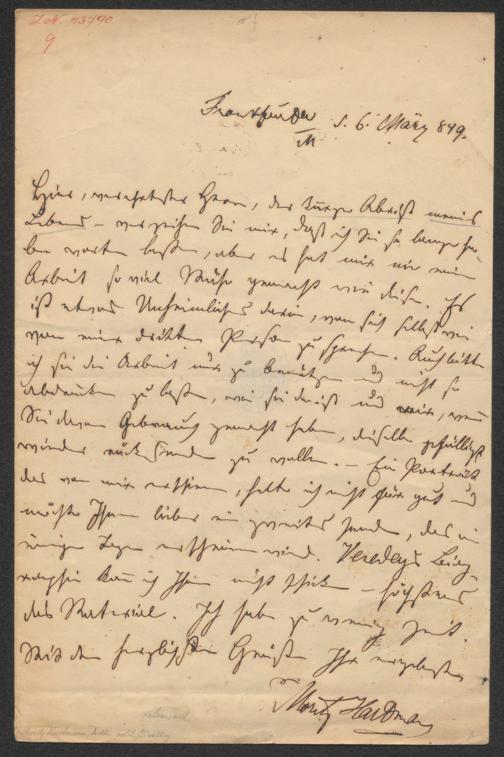 I.N. 43490
9
Frankfurt a/M d. 6. März 849.
Hier, verehrtester Herr, der kurze Abriß meines
Lebens – verzeihen Sie mir, daß ich Sie so lange ha-
be warten lassen, aber es hat mir nie eine
Arbeit so viel Mühe gemacht wie diese. Es
ist etwas Unheimliches darin, von sich selbst wie
von einer dritten Person zu sprechen. Auch bitte
ich Sie die Arbeit nur zu benützen und nicht so
abdrucken zu lassen, wie sie da ist und mir, wenn
Sie davon Gebrauch gemacht haben, dieselbe gefälligst
wieder rücksenden zu wollen. – Ein Porträt
das von mir erschien, halte ich nicht für gut und
möchte Ihnen lieber ein zweites senden, das in
einigen Tagen erscheinen wird. Venedeys Biog-
raphie kann ich Ihnen nicht schicken – höchstens
das Material. Ich habe zu wenig Zeit.
Mit den herzlichsten Grüßen Ihr ergebenster
Moritz Hartmann